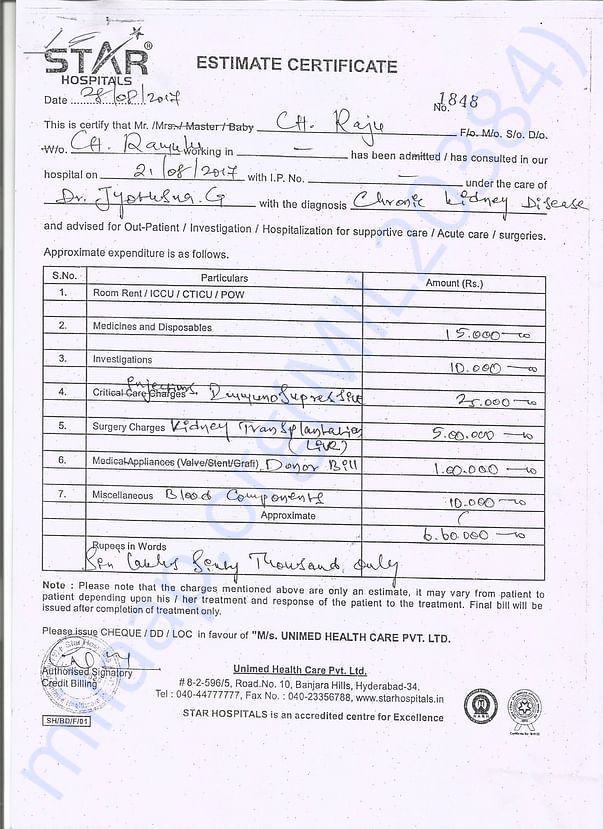 STAR®
HOSPITALS
ESTIMATE CERTIFICATE
Date 28/08/2017
No. 1848
This is certify that Mr. /Mrs./ Master / Baby CH. Raju F/o. M/o. S/o. D/o.
W/o. CH. Ramulu working in — has been admitted / has consulted in our
hospital on 21/08/2017 with I.P. No. — under the care of
Dr. Jyothsna.G with the diagnosis Chronic Kidney Disease
and advised for Out-Patient / Investigation / Hospitalization for supportive care / Acute care / surgeries.
Approximate expenditure is as follows.
S.No. Particulars Amount (Rs.)
1. Room Rent / ICCU / CTICU / POW
2. Medicines and Disposables 15.000-00
3. Investigations 10.000-00
4. Critical Care Charges Injections Immuno Supressive 25.000-00
5. Surgery Charges Kidney Transplantation 5.00.000-00
(Live)
6. Medical Appliances (Valve/Stent/Graft) Donor Bill 1.00.000-00
7. Miscellaneous Blood Components 10.000-00
Approximate
6.60.000-00
Rupees in Words
Six Lakhs Sixty Thousand Only
Note : Please note that the charges mentioned above are only an estimate, it may vary from patient to
patient depending upon his / her treatment and response of the patient to the treatment. Final bill will be
issued after completion of treatment only.
Please issue CHEQUE / DD / LOC in favour of "M/s. UNIMED HEALTH CARE PVT. LTD.
Authorised Signatory
Credit Billing
Unimed Health Care Pvt. Ltd.
# 8-2-596/5, Road.No. 10, Banjara Hills, Hyderabad-34,
Tel : 040-44777777, Fax No. : 040-23356788, www.starhospitals.in
STAR HOSPITALS is an accredited centre for Excellence
SH/BD/F/01
milaap.org(MIL20384)